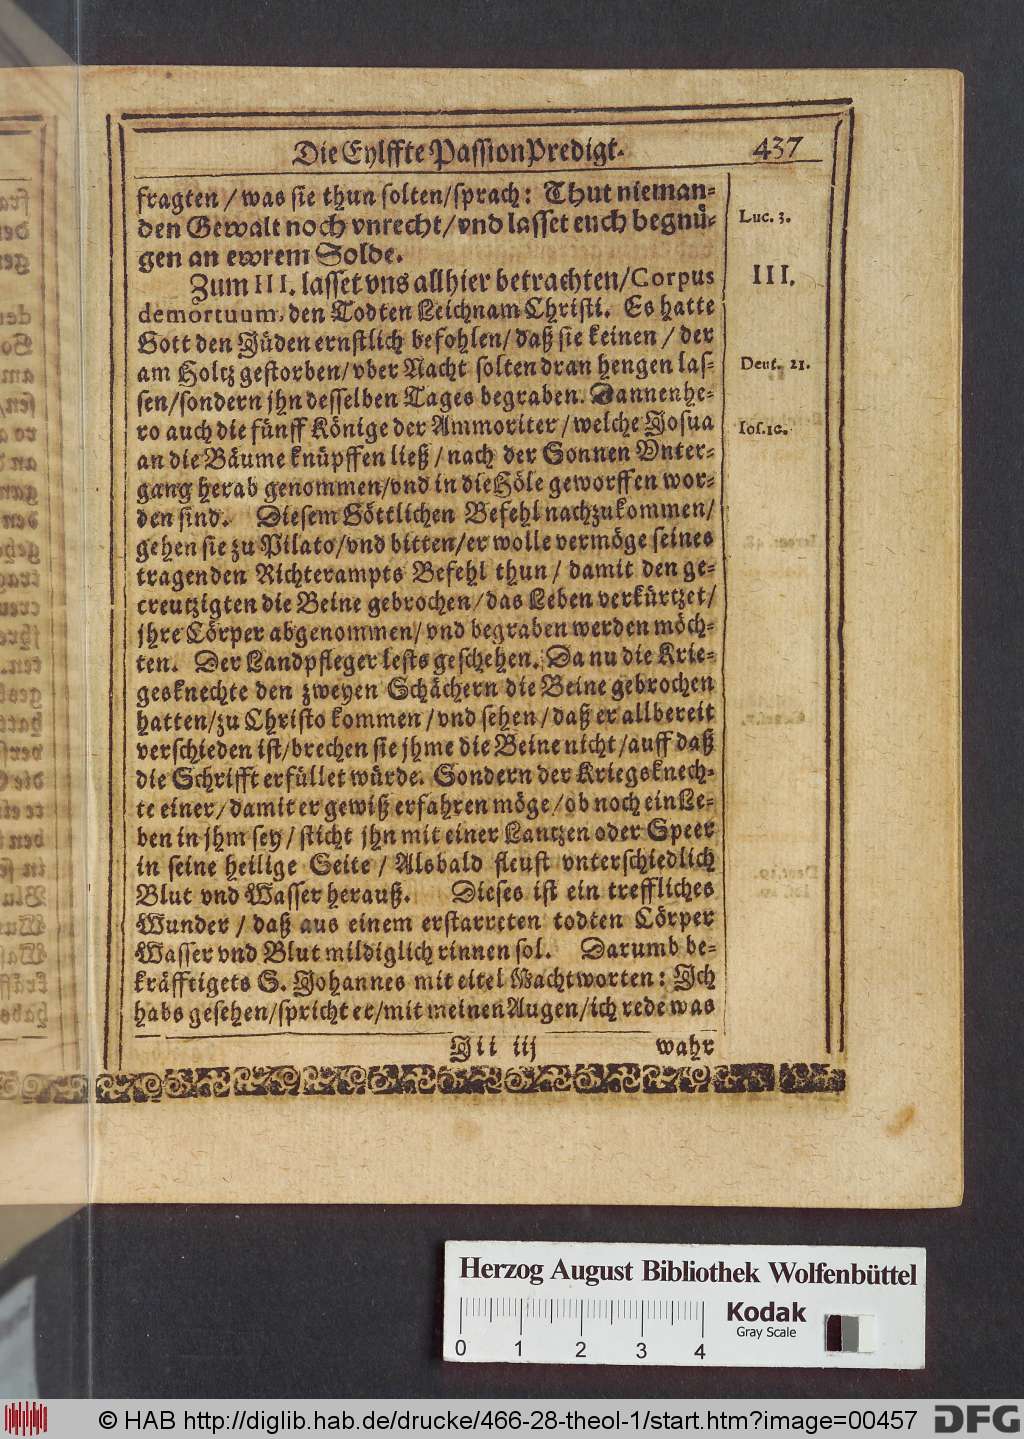 Die Eylffte Passion Predigt.
437
fragten / was sie thun solten/sprach: Thut nieman-
den Gewalt noch vnrecht/vnd lasset euch begnü-
gen an ewrem Solde.
Luc. 3.
Zum III. lasset vns allhier betrachten/Corpus
III.
demortuum, den Todten Leichnam Christi. Es hatte
Gott den Jüden ernstlich befohlen/ daß sie keinen / der
am Holtz gestorben/ vber Nacht solten dran hengen las-
Deut. 21.
sen/sondern jhn desselben Tages begraben. Dannenhe-
ro auch die fünff Könige der Ammoriter / welche Josua
Ios.10.
an die Bäume knüpffen ließ / nach der Sonnen Vnter-
gang herab genommen/vnd in die Höle geworffen wor-
den sind. Diesem Göttlichen Befehl nachzukommen/
gehen sie zu Pilato/vnd bitten/er wolle vermöge seines
tragenden Richterampts Befehl thun / damit den ge-
creutzigten die Beine gebrochen/das Leben verkürtzet/
jhre Cörper abgenommen/ vnd begraben werden möch-
ten. Der Landpfleger lests geschehen. Da nu die Krie-
gesknechte den zweyen Schächern die Beine gebrochen
hatten/zu Christo kommen / vnd sehen / daß er allbereit
verschieden ist/brechen sie jhme die Beine nicht /auff daß
die Schrifft erfüllet würde. Sondern der Kriegsknech-
te einer/damit er gewiß erfahren möge / ob noch ein Le-
ben in jhm sey / sticht jhn mit einer Lantzen oder Speer
in seine heilige Seite / Alsbald fleust vnterschiedlich
Blut vnd Wasser herauß. Dieses ist ein treffliches
Wunder / daß aus einem erstarreten todten Cörper
Wasser vnd Blut mildiglich rinnen sol. Darumb be-
kräfftigets S. Johannes mit eitel Machtworten: Jch
habs gesehen/spricht er/mit meinen Augen/ich rede was
Jii iij
wahr
Herzog August Bibliothek Wolfenbüttel
Kodak
Gray Scale
0 1 2 3 4
© HAB http://diglib.hab.de/drucke/466-28-theol-1/start.htm?image=00457
DFG